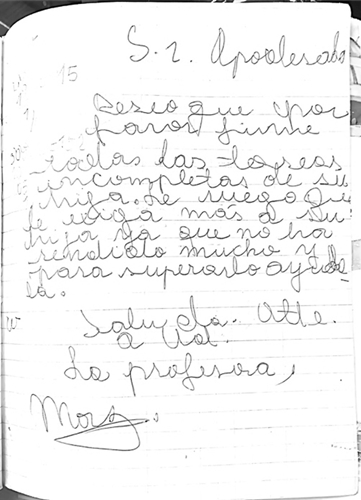 S.r. Apoderado
15
Deseo que por
favor firme
todas las tareas
incompletas de su
hija. Le ruego que
le exija más a su
hija ya que no ha
rendido mucho y
para superarlo ayúde
la.
Saluda Atte.
a Ud.
La profesora,